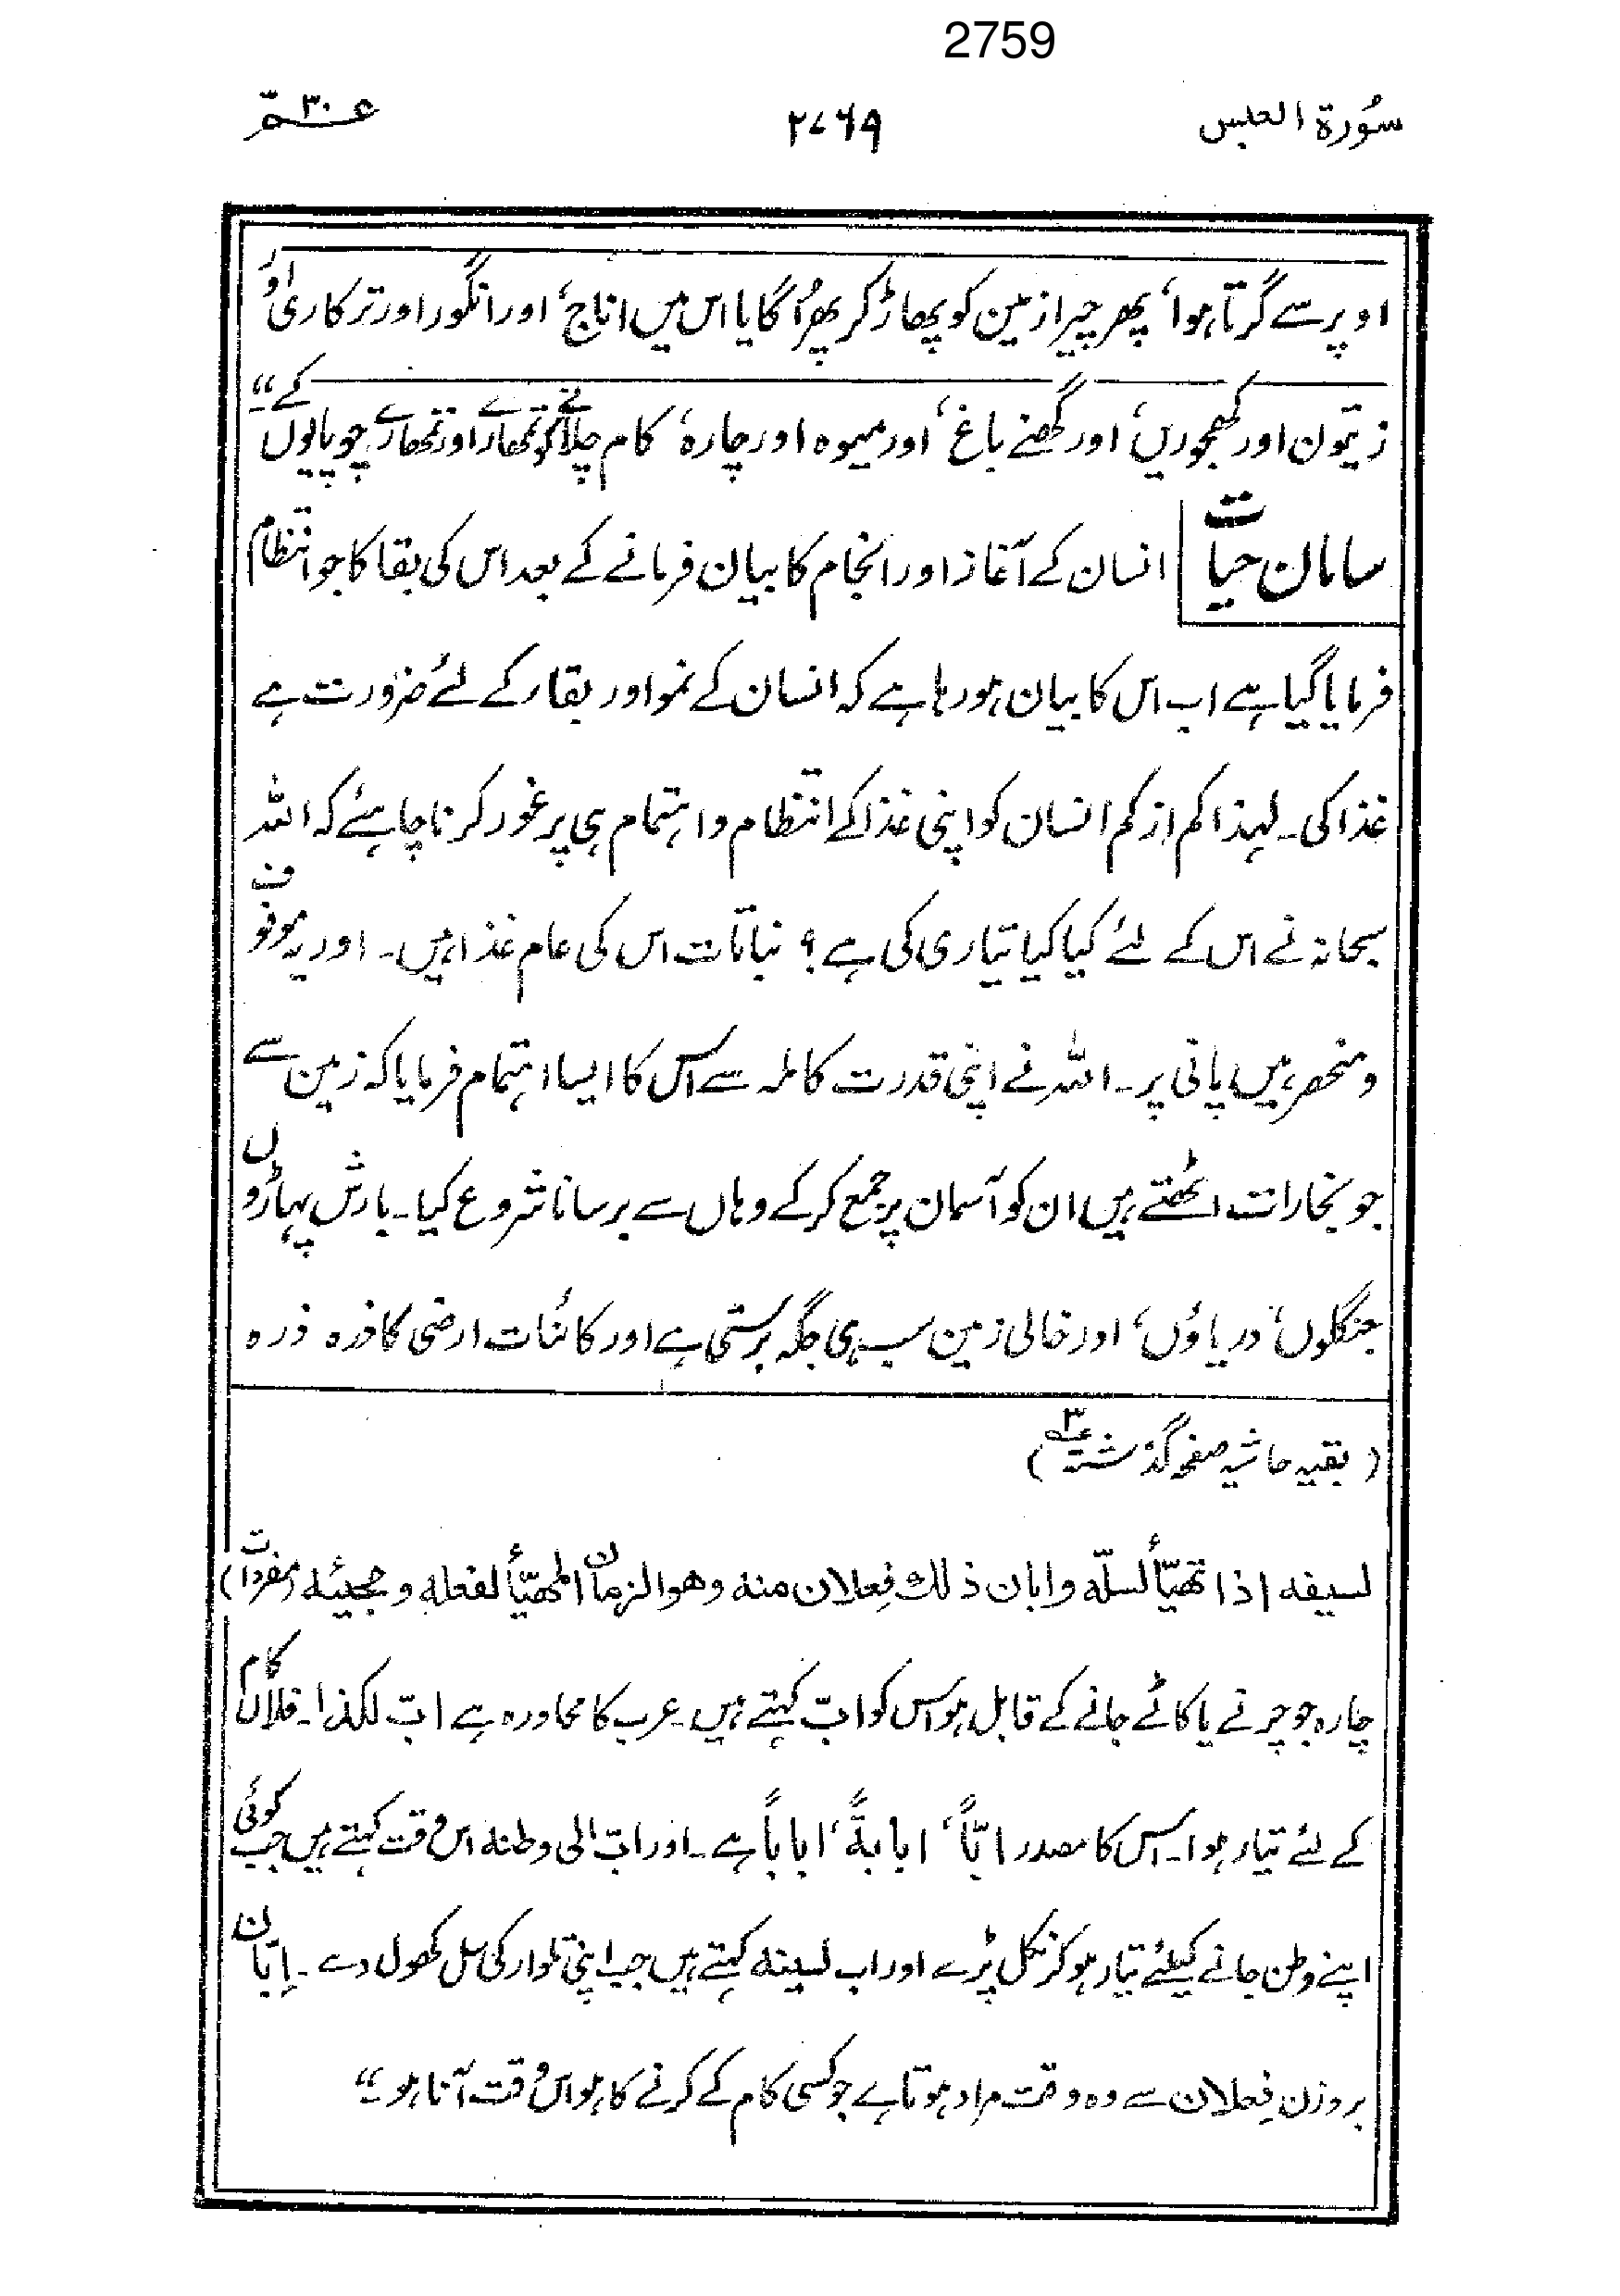 2759
سُورۃ العبس ۲۷۶۹ عـــمّ ۳۰
اوپر سے گرتا ہوا، پھر چیرا زمین کو پھاڑ کر پھر اُگایا اس میں اناج، اور انگور اور ترکاری اور
زیتون اور کھجوریں، اور گھنے باغ، اور میوہ اور چارہ، کام چلانے کو تمھارے اور تمھارے چوپایوں کے۔“
سامان حیات انسان کے آغاز اور انجام کا بیان فرمانے کے بعد اس کی بقا کا جو انتظام
فرمایا گیا ہے اب اس کا بیان ہو رہا ہے کہ انسان کے نمو اور بقاء کے لئے ضرورت ہے
غذا کی۔ لہذا کم از کم انسان کو اپنی غذا کے انتظام و اہتمام ہی پر غور کرنا چاہئے کہ اللہ
سبحانہ نے اس کے لئے کیا کیا تیاری کی ہے؟ نباتات اس کی عام غذا ہیں۔ اور یہ موقوف
و منحصر ہیں پانی پر۔ اللہ نے اپنی قدرت کاملہ سے اس کا ایسا اہتمام فرمایا کہ زمین سے
جو بخارات اٹھتے ہیں ان کو آسمان پر جمع کر کے وہاں سے برسانا شروع کیا۔ بارش پہاڑوں
جنگلوں، دریاؤں، اور خالی زمین سب ہی جگہ برستی ہے اور کائنات ارضی کا ذرہ ذرہ
(بقیہ حاشیہ صفحہ گذشتہ عہ۳)
لسیفه اذا تھیّأ لسلّه وابان ذلك فِعلان منه وھو الزمان المھیّأ لفعله و مجیئه (مفردات)
چارہ جو چرنے یا کاٹے جانے کے قابل ہو اس کو ابّ کہتے ہیں۔ عرب کا محاورہ ہے ابّ لکذا۔ فلاں کام
کے لئے تیار ہوا۔ اس کا مصدر ابّاً، ابابةً، اباباً ہے۔ اور ابّ الی وطنه اس وقت کہتے ہیں جب کوئی
اپنے وطن جانے کیلئے تیار ہو کر نکل پڑے اور اب لسیفه کہتے ہیں جب اپنی تلوار کی سل کھول دے۔ اِبّان
بروزن فِعلان سے وہ وقت مراد ہوتا ہے جو کسی کام کے کرنے کا ہو اس وقت آنا ہو۔“